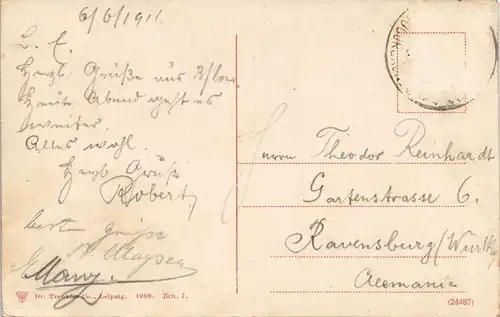 6/6/1911
L. E.
Herzl. Grüße aus
Heute Abend geht es
weiter.
Alles wohl.
Herzl Gruß
Robert
beste Grüße
Herrn Theodor Reinhardt
Gartenstrasse 6.
Ravensburg/
Alemania
Dr. Trenkler Co., Leipzig. 1908. Bcn. 7.
(24487)